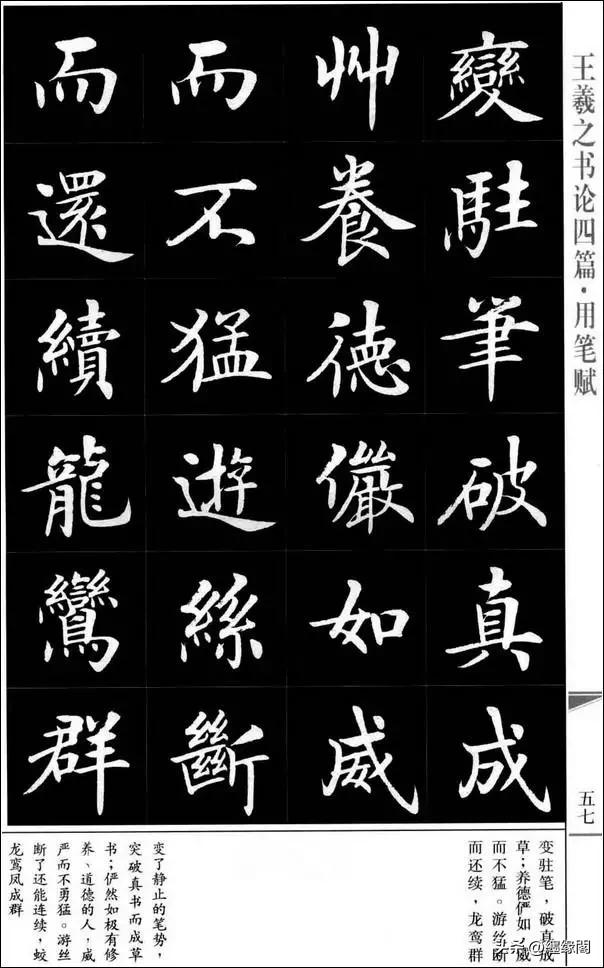 王羲之书论四篇·用笔赋
五七
變駐筆破真成
艸養德儼如威
而不猛遊絲斷
而還續龍鸞群
变驻笔，破真成
草；养德俨如，威
而不猛。游丝断
而还续，龙鸾群
变了静止的笔势，
突破真书而成草
书；俨然如极有修
养、道德的人，威
严而不勇猛。游丝
断了还能连续，蛟
龙鸾凤成群
头条